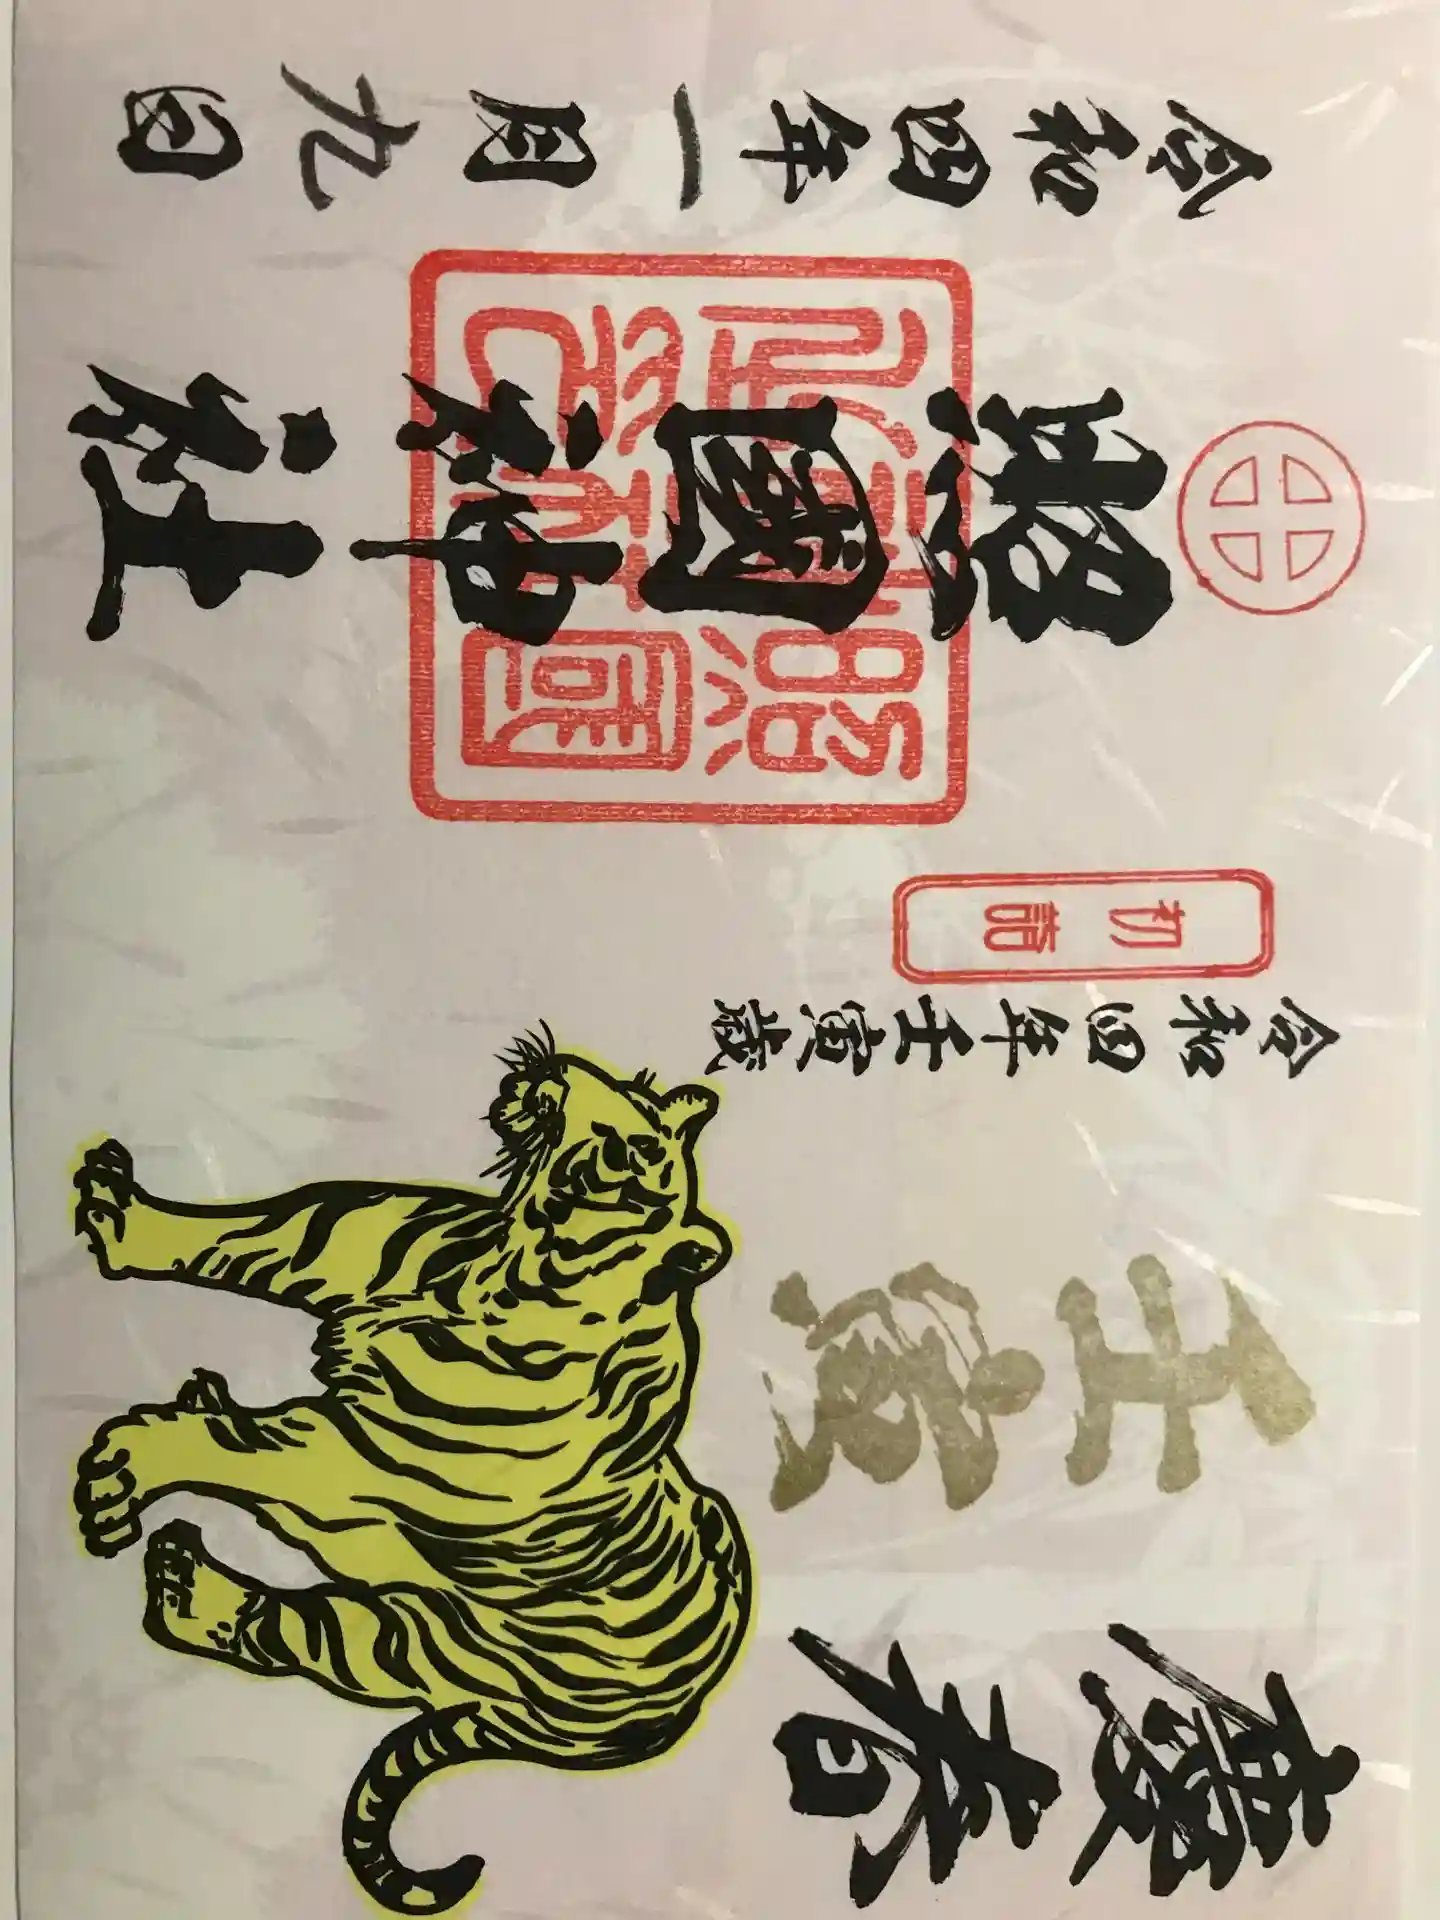 慶春
壬寅
令和四年壬寅歳
初詣
照國神社
令和四年一月九日